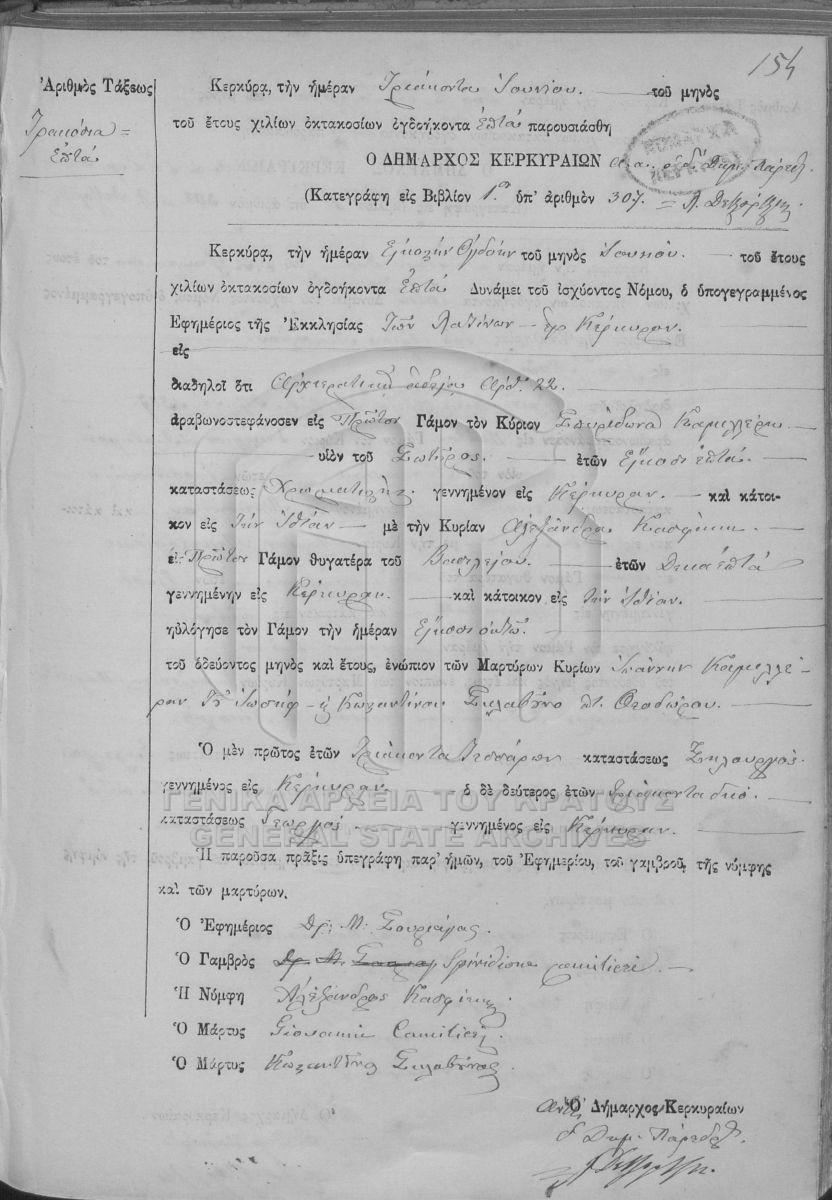 154
Ἀριθμὸς Τάξεως
Τρακόσια =
Ἑπτά
Κερκύρᾳ, τὴν ἡμέραν Τριάκοντα Ἰουνίου. τοῦ μηνὸς
τοῦ ἔτους χιλίων ὀκτακοσίων ὀγδοήκοντα Ἑπτά παρουσιάσθη
Ο ΔΗΜΑΡΧΟΣ ΚΕΡΚΥΡΑΙΩΝ
(Κατεγράφη εἰς Βιβλίον 1ον ὑπ' ἀριθμὸν 307.
Κερκύρᾳ, τὴν ἡμέραν Εἰκοστὴν Ὀγδόην τοῦ μηνὸς Ἰουνίου. τοῦ ἔτους
χιλίων ὀκτακοσίων ὀγδοήκοντα Ἑπτά Δυνάμει τοῦ ἰσχύοντος Νόμου, ὁ ὑπογεγραμμένος
Ἐφημέριος τῆς Ἐκκλησίας Τῶν Λατίνων Κέρκυραν.
εἰς
διαδηλοῖ ὅτι Ἀρχιερατικῇ ἀδείᾳ Ἀριθ. 22.
ἀραβωνοστεφάνοσεν εἰς Πρῶτον Γάμον τὸν Κύριον Σπυρίδωνα Καμιλλέρη
υἱὸν τοῦ Σωτῆρος. ἐτῶν Εἴκοσι ἑπτά.
καταστάσεως Χρωματιστὴς γεννημένον εἰς Κέρκυραν. καὶ κάτοι-
κον εἰς Τὴν Ἰδίαν μὲ τὴν Κυρίαν Ἀλεξάνδρα
εἰς Πρῶτον Γάμον θυγατέρα τοῦ Βασιλείου. ἐτῶν Δεκαεπτά
γεννημένην εἰς Κέρκυραν. καὶ κάτοικον εἰς τὴν Ἰδίαν.
ηὐλόγησε τὸν Γάμον τὴν ἡμέραν Εἴκοσι ὀκτώ.
τοῦ ὁδεύοντος μηνὸς καὶ ἔτους, ἐνώπιον τῶν Μαρτύρων Κυρίων Ἰωάννην Καμιλλέ-
ραν τοῦ Ἰωσὴφ Κωσταντίνου Σκλαβοῦνο Θεοδώρου.
Ὁ μὲν πρῶτος ἐτῶν Τριάκοντα Τεσσάρων καταστάσεως Ξηλουργός.
γεννημένος εἰς Κέρκυραν ὁ δὲ δεύτερος ἐτῶν Τριάκοντα δύο.
καταστάσεως Γεωργός γεννημένος εἰς Κέρκυραν.
ΓΕΝΙΚΑ ΑΡΧΕΙΑ ΤΟΥ ΚΡΑΤΟΥΣ
GENERAL STATE ARCHIVES
Ἡ παροῦσα πρᾶξις ὑπεγράφη παρ' ἡμῶν, τοῦ Ἐφημερίου, τοῦ γαμβροῦ, τῆς νύμφης
καὶ τῶν μαρτύρων.
Ὁ Ἐφημέριος Δρ. Μ.
Ὁ Γαμβρὸς Spiridione Camilieri
Ἡ Νύμφη
Ὁ Μάρτυς Giovanni Camilieri
Ὁ Μάρτυς Κωσταντῖνος Σκλαβοῦνος
Ὁ Δήμαρχος Κερκυραίων
ὁ Δημ. Πάρεδρ.